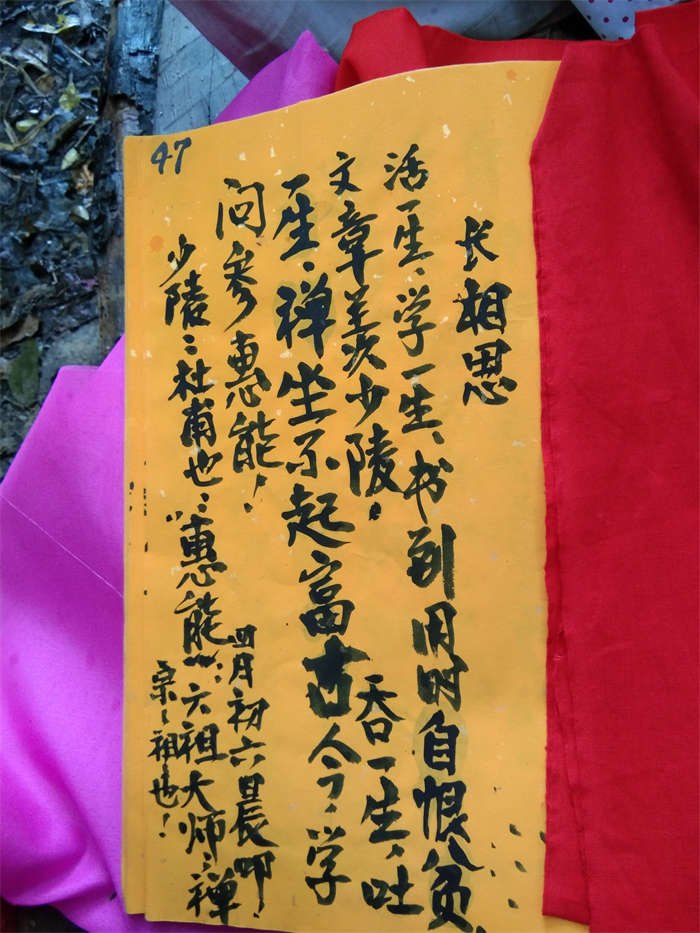 47
长相思
活一生,学一生,书到用时自恨贫,
文章羡少陵! 吞一生,吐
一生,禅坐不起富古今,学
问参惠能!
四月初六日晨叩!
少陵:杜甫也;“惠能”:六祖大师;禅
宗之祖也!